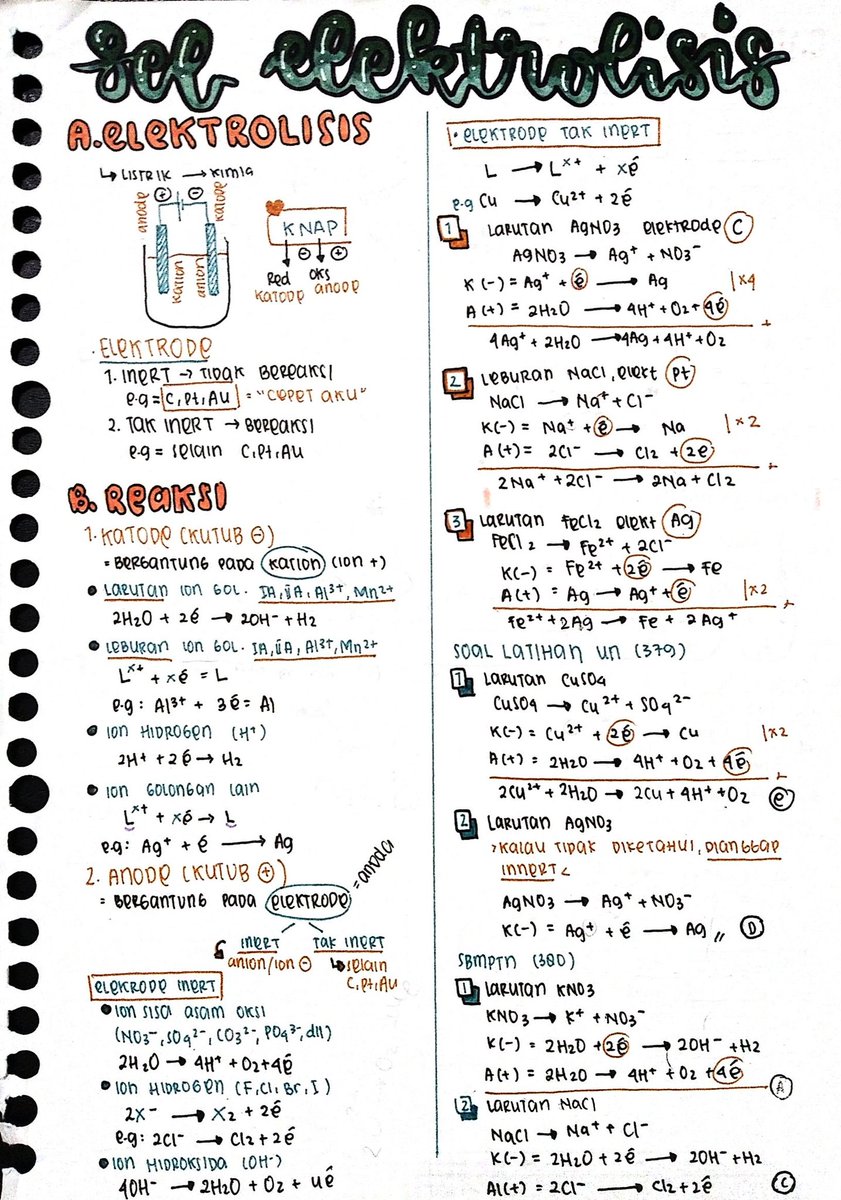 sel elektrolisis
A. ELEKTROLISIS
↳ LISTRIK → KIMIA
anode ⊕ ⊖ katode
KATION ANION
KNAP
⊖ ⊕
Red OKS
KATODE ANODE
· ELEKTRODE
1. INERT → TIDAK BEREAKSI
e.g = C, Pt, Au = "CEPET AKU"
2. TAK INERT → BEREAKSI
e.g = selain C, Pt, Au
B. REAKSI
1. KATODE (KUTUB ⊖)
= BERGANTUNG PADA KATION (ION +)
• LARUTAN ION GOL. IA, IIA, Al³⁺, Mn²⁺
2H₂O + 2é → 2OH⁻ + H₂
• LEBURAN ION GOL. IA, IIA, Al³⁺, Mn²⁺
Lˣ⁺ + xé = L
e.g : Al³⁺ + 3é = Al
• ION HIDROGEN (H⁺)
2H⁺ + 2é → H₂
• ION GOLONGAN LAIN
Lˣ⁺ + xé → L
e.g: Ag⁺ + é → Ag
2. ANODE (KUTUB ⊕)
= BERGANTUNG PADA ELEKTRODE = anoda
INERT TAK INERT
anion/ion ⊖ ↳ selain
C, Pt, Au
ELEKRODE INERT
• ION SISA ASAM OKSI
(NO₃⁻, SO₄²⁻, CO₃²⁻, PO₄³⁻, dll)
2H₂O → 4H⁺ + O₂ + 4é
• ION HIDROGEN (F, Cl, Br, I)
2X⁻ → X₂ + 2é
e.g: 2Cl⁻ → Cl₂ + 2é
• ION HIDROKSIDA (OH⁻)
4OH⁻ → 2H₂O + O₂ + 4é
• ELEKTRODE TAK INERT
L → Lˣ⁺ + xé
e.g Cu → Cu²⁺ + 2é
1 LARUTAN AgNO₃ elektrode C
AgNO₃ → Ag⁺ + NO₃⁻
K(-) = Ag⁺ + é → Ag |x4
A(+) = 2H₂O → 4H⁺ + O₂ + 4é
+
4Ag⁺ + 2H₂O → 4Ag + 4H⁺ + O₂
2 LEBURAN NaCl, elekt Pt
NaCl → Na⁺ + Cl⁻
K(-) = Na⁺ + é → Na |x2
A(+) = 2Cl⁻ → Cl₂ + 2é
+
2Na⁺ + 2Cl⁻ → 2Na + Cl₂
3 LARUTAN FeCl₂ elekt Ag
FeCl₂ → Fe²⁺ + 2Cl⁻
K(-) = Fe²⁺ + 2é → Fe
A(+) = Ag → Ag⁺ + é |x2
+
Fe²⁺ + 2Ag → Fe + 2Ag⁺
SOAL LATIHAN UN (379)
1 LARUTAN CuSO₄
CuSO₄ → Cu²⁺ + SO₄²⁻
K(-) = Cu²⁺ + 2é → Cu |x2
A(+) = 2H₂O → 4H⁺ + O₂ + 4é
+
2Cu²⁺ + 2H₂O → 2Cu + 4H⁺ + O₂ Ⓔ
2 LARUTAN AgNO₃
>KALAU TIDAK DIKETAHUI, DIANGGAP
INNERT<
AgNO₃ → Ag⁺ + NO₃⁻
K(-) = Ag⁺ + é → Ag,, Ⓓ
SBMPTN (380)
1 LARUTAN KNO₃
KNO₃ → K⁺ + NO₃⁻
K(-) = 2H₂O + 2é → 2OH⁻ + H₂
A(+) = 2H₂O → 4H⁺ + O₂ + 4é
Ⓐ
2 LARUTAN NaCl
NaCl → Na⁺ + Cl⁻
K(-) = 2H₂O + 2é → 2OH⁻ + H₂
A(+) = 2Cl⁻ → Cl₂ + 2é Ⓒ